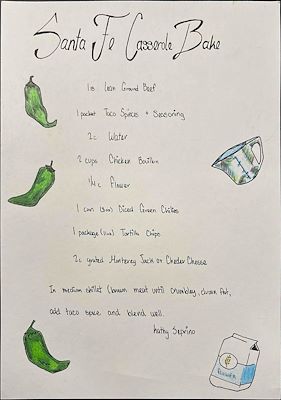 Santa Fe Casserole Bake
1 lb Lean Ground Beef
1 packet Taco Spices + Seasoning
2c Water
2 cups Chicken Bouillon
1/4 c Flower
1 can Diced Green Chilies
1 package Tortilla Chips
2c grated Monterey Jack or Cheder Cheese
In medium skillet brown meat until crumbley, drain fat,
add taco and blend well.
Kathy